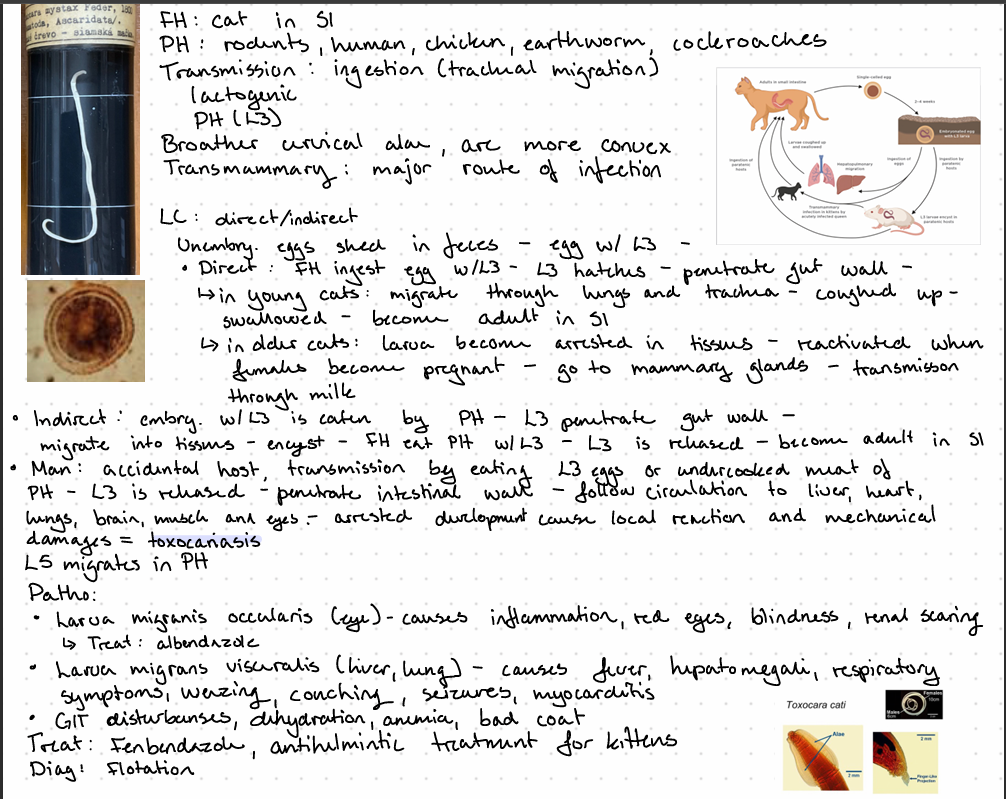 cara mystax Feder, 180
matoda, Ascaridata/.
drevo - siamská mačka
FH: cat in SI
PH: rodents, human, chicken, earthworm, cockroaches
Transmission: ingestion (tracheal migration)
lactogenic
PH (L3)
Broather cervical alae, are more convex
Transmammary: major route of infection
Adults in small intestine
Single-celled egg
2-4 weeks
Embryonated egg with L3 larva
Larvae coughed up and swallowed
Ingestion of paratenic hosts
Hepatopulmonary migration
Ingestion of eggs
Ingestion by paratenic hosts
Transmammary infection in kittens by acutely infected queen
L3 larvae encyst in paratenic hosts
LC: direct/indirect
Unembry. eggs shed in feces - egg w/ L3 -
• Direct: FH ingest egg w/L3 - L3 hatches - penetrate gut wall -
↳ in young cats: migrate through lungs and trachea - coughed up -
swallowed - become adult in SI
↳ in older cats: larva become arrested in tissues - reactivated when
females become pregnant - go to mammary glands - transmisson
through milk
• Indirect: embry. w/L3 is eaten by PH - L3 penetrate gut wall -
migrate into tissues - encyst - FH eat PH w/L3 - L3 is released - become adult in SI
• Man: accidental host, transmission by eating L3 eggs or undercooked meat of
PH - L3 is released - penetrate intestinal wall - follow circulation to liver, heart,
lungs, brain, muscle and eyes. - arrested development cause local reaction and mechanical
damages = toxocariasis
L5 migrates in PH
Patho:
• Larva migranis occularis (eye) - causes inflammation, red eyes, blindness, renal scaring
↳ Treat: albendazole
• Larva migrans visceralis (liver, lung) - causes fever, hepatomegali, respiratory
symptoms, weazing, conching, seizures, myocarditis
• GIT disturbanses, dehydration, anemia, bad coat
Treat: Fenbendazole, antihelmintic treatment for kittens
Diag: Flotation
Toxocara cati
Females
10cm
Males
6cm
Alae
2 mm
2 mm
Finger-Like
Projection